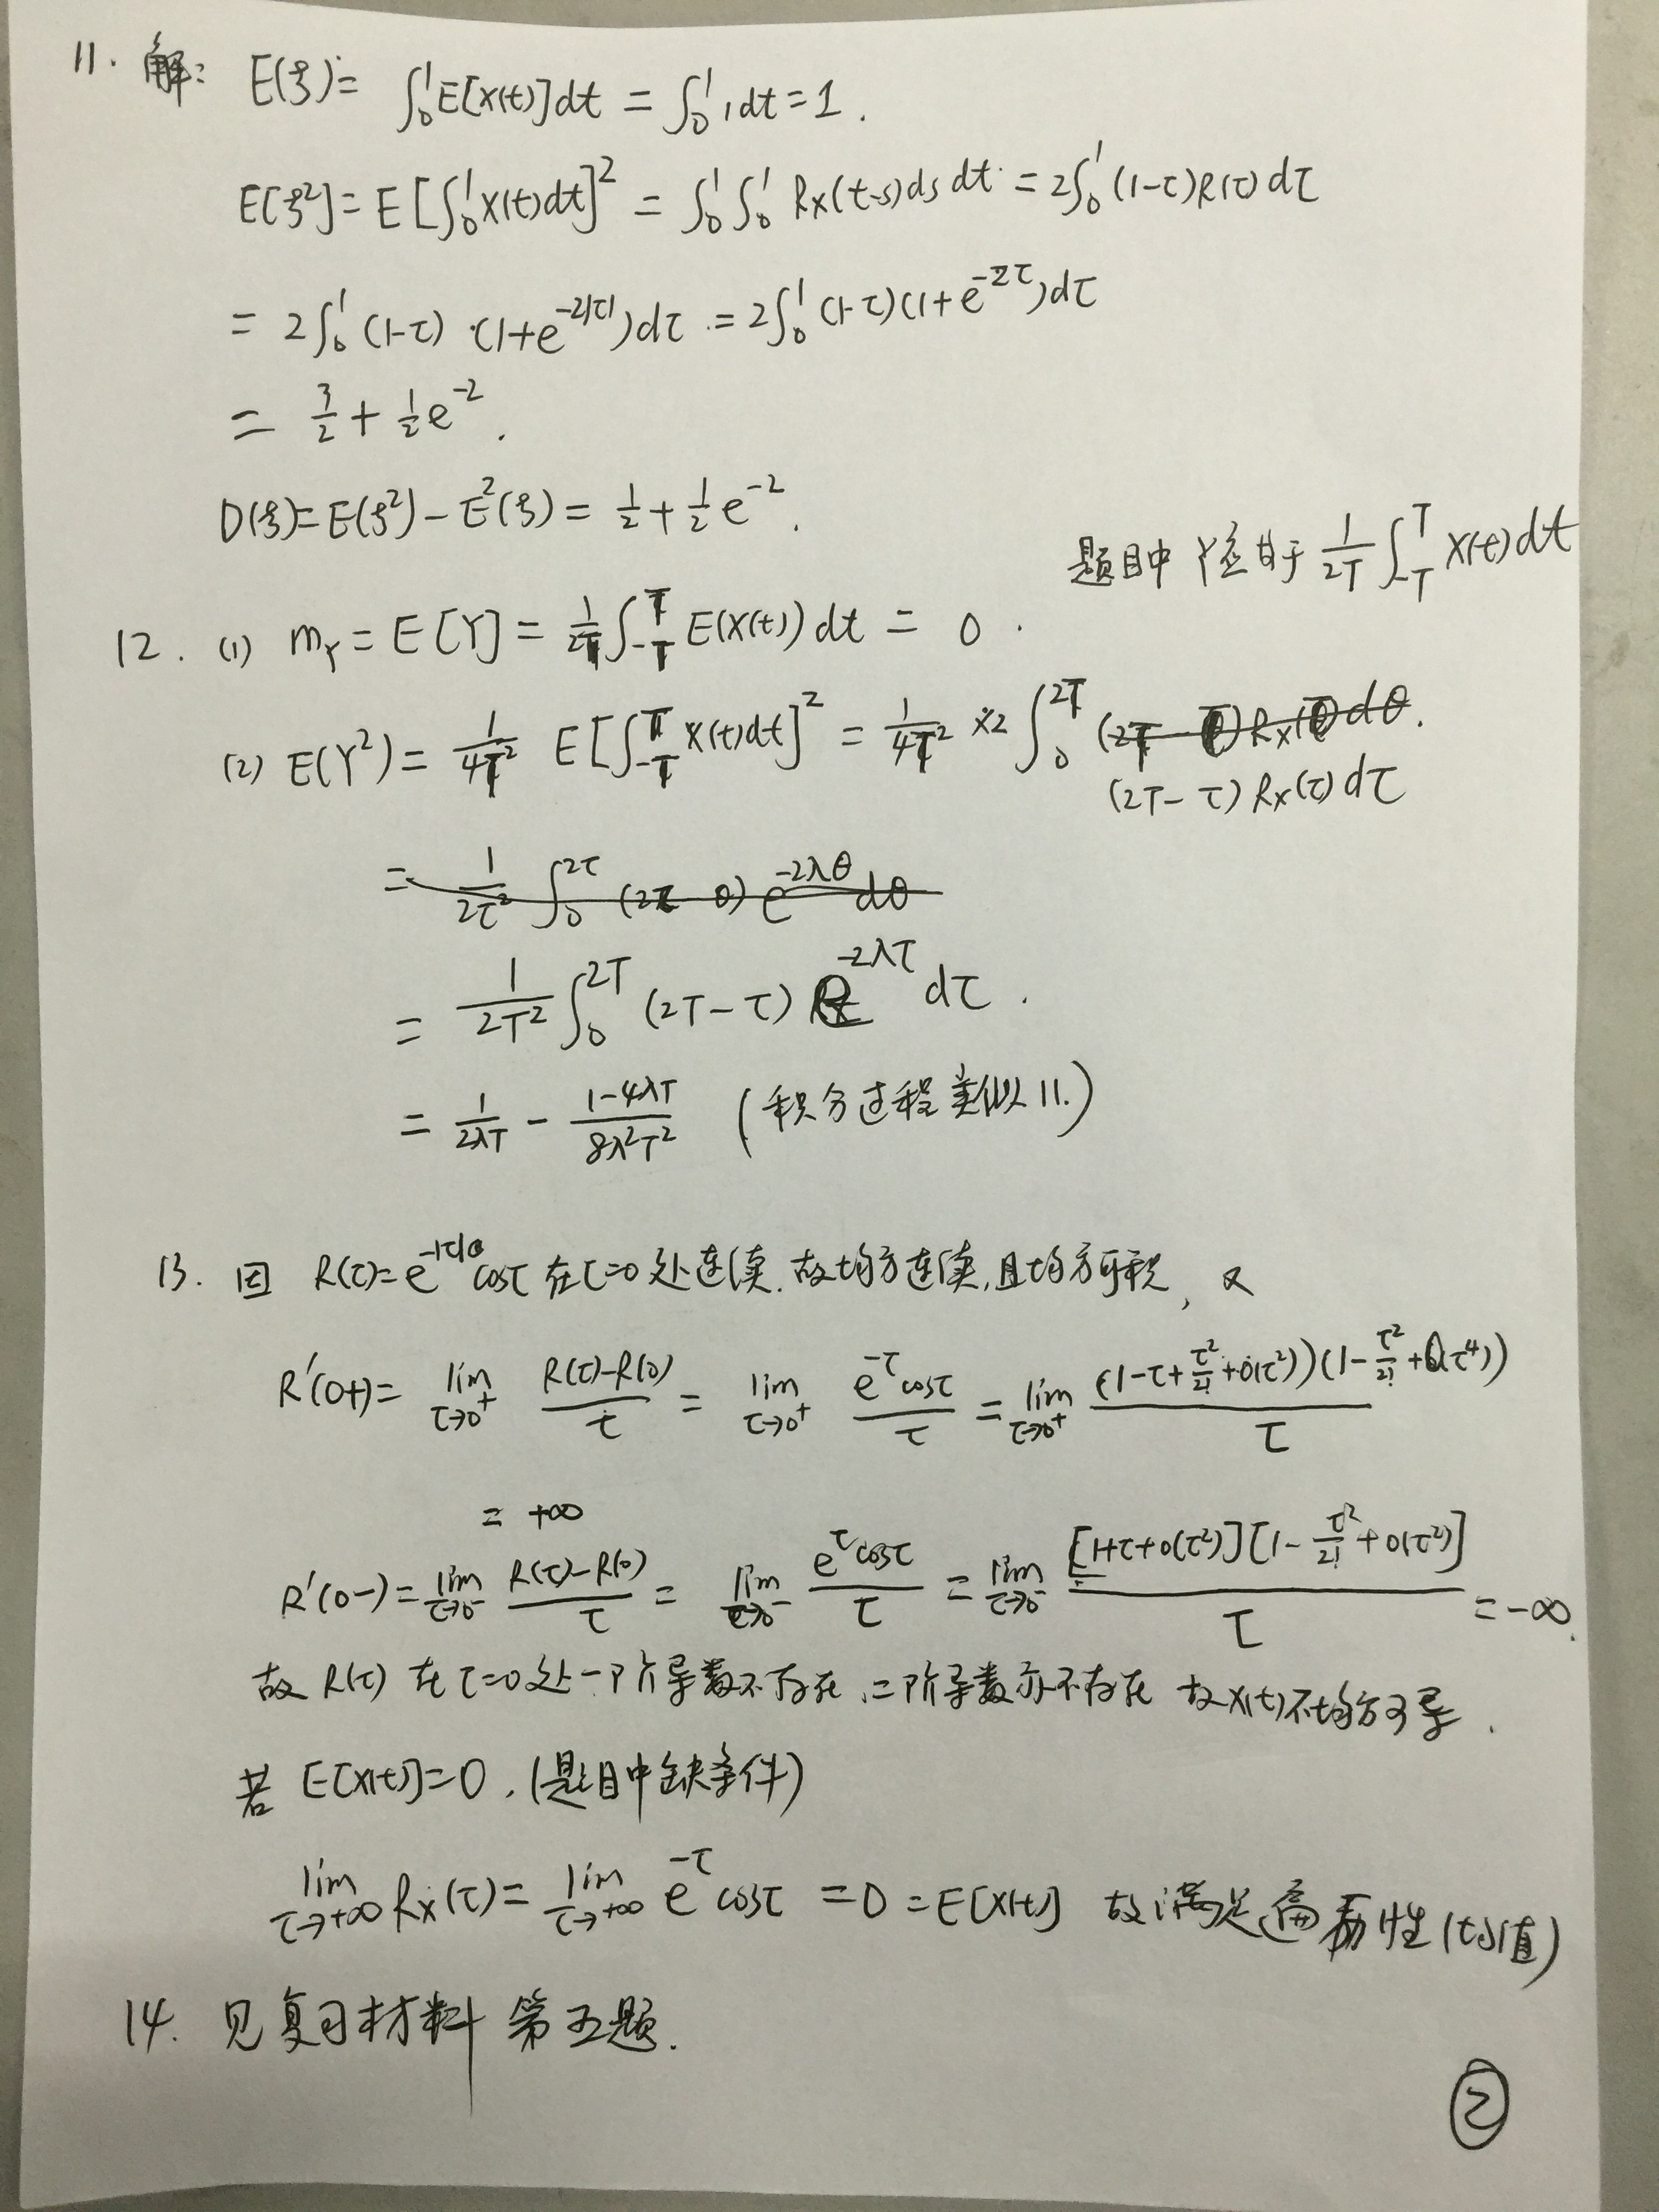 11. 解: E(ξ)= ∫₀¹E[X(t)]dt = ∫₀¹ 1dt = 1.
E[ξ²]= E[∫₀¹X(t)dt]² = ∫₀¹∫₀¹ Rx(t-s)ds dt = 2∫₀¹(1-τ)R(τ)dτ
= 2∫₀¹(1-τ)·(1+e^{-2|τ|})dτ = 2∫₀¹(1-τ)(1+e^{-2τ})dτ
= 3/2 + 1/2 e^{-2}.
D(ξ)=E(ξ²)-E²(ξ)= 1/2 + 1/2 e^{-2}.
题目中 Y应
于 1/2T ∫_{-T}^{T} X(t)dt
12. (1) m_Y = E[Y] = 1/2T ∫_{-T}^{T} E(X(t))dt = 0.
(2) E(Y²) = 1/4T² E[∫_{-T}^{T} X(t)dt]² = 1/4T² ×2 ∫₀^{2T}
(2T-τ)Rx(τ)dτ
= 1/2τ² ∫₀^{2τ} (2τ-θ) e^{-2λθ} dθ
= 1/2T² ∫₀^{2T} (2T-τ) e^{-2λτ} dτ.
= 1/2λT - (1-4λT)/8λ²T² (积分过程类似11.)
13. 因 R(τ)=e^{-|τ|}cosτ 在τ=0处连续.故均方连续,且均方可积, 又
R'(0+)= lim_{τ→0⁺} (R(τ)-R(0))/τ = lim_{τ→0⁺} e^{-τ}cosτ/τ = lim_{τ→0⁺} (1-τ+τ²/2!+0(τ²))(1-τ²/2!+0(τ⁴))/τ
= +∞
R'(0-)= lim_{τ→0⁻} (R(τ)-R(0))/τ = lim_{τ→0⁻} e^{τ}cosτ/τ = lim_{τ→0⁻} [1+τ+0(τ²)][1-τ²/2!+0(τ²)]/τ = -∞.
故 R(τ) 在 τ=0处一阶导数不存在,二阶导数亦不存在 故X(t)不均方可导.
若 E[X(t)]=0, (题目中缺条件)
lim_{τ→+∞} Rx(τ)= lim_{τ→+∞} e^{-τ}cosτ = 0 = E[X(t)] 故满足遍历性(均值)
14. 见复习材料 第五题.
②